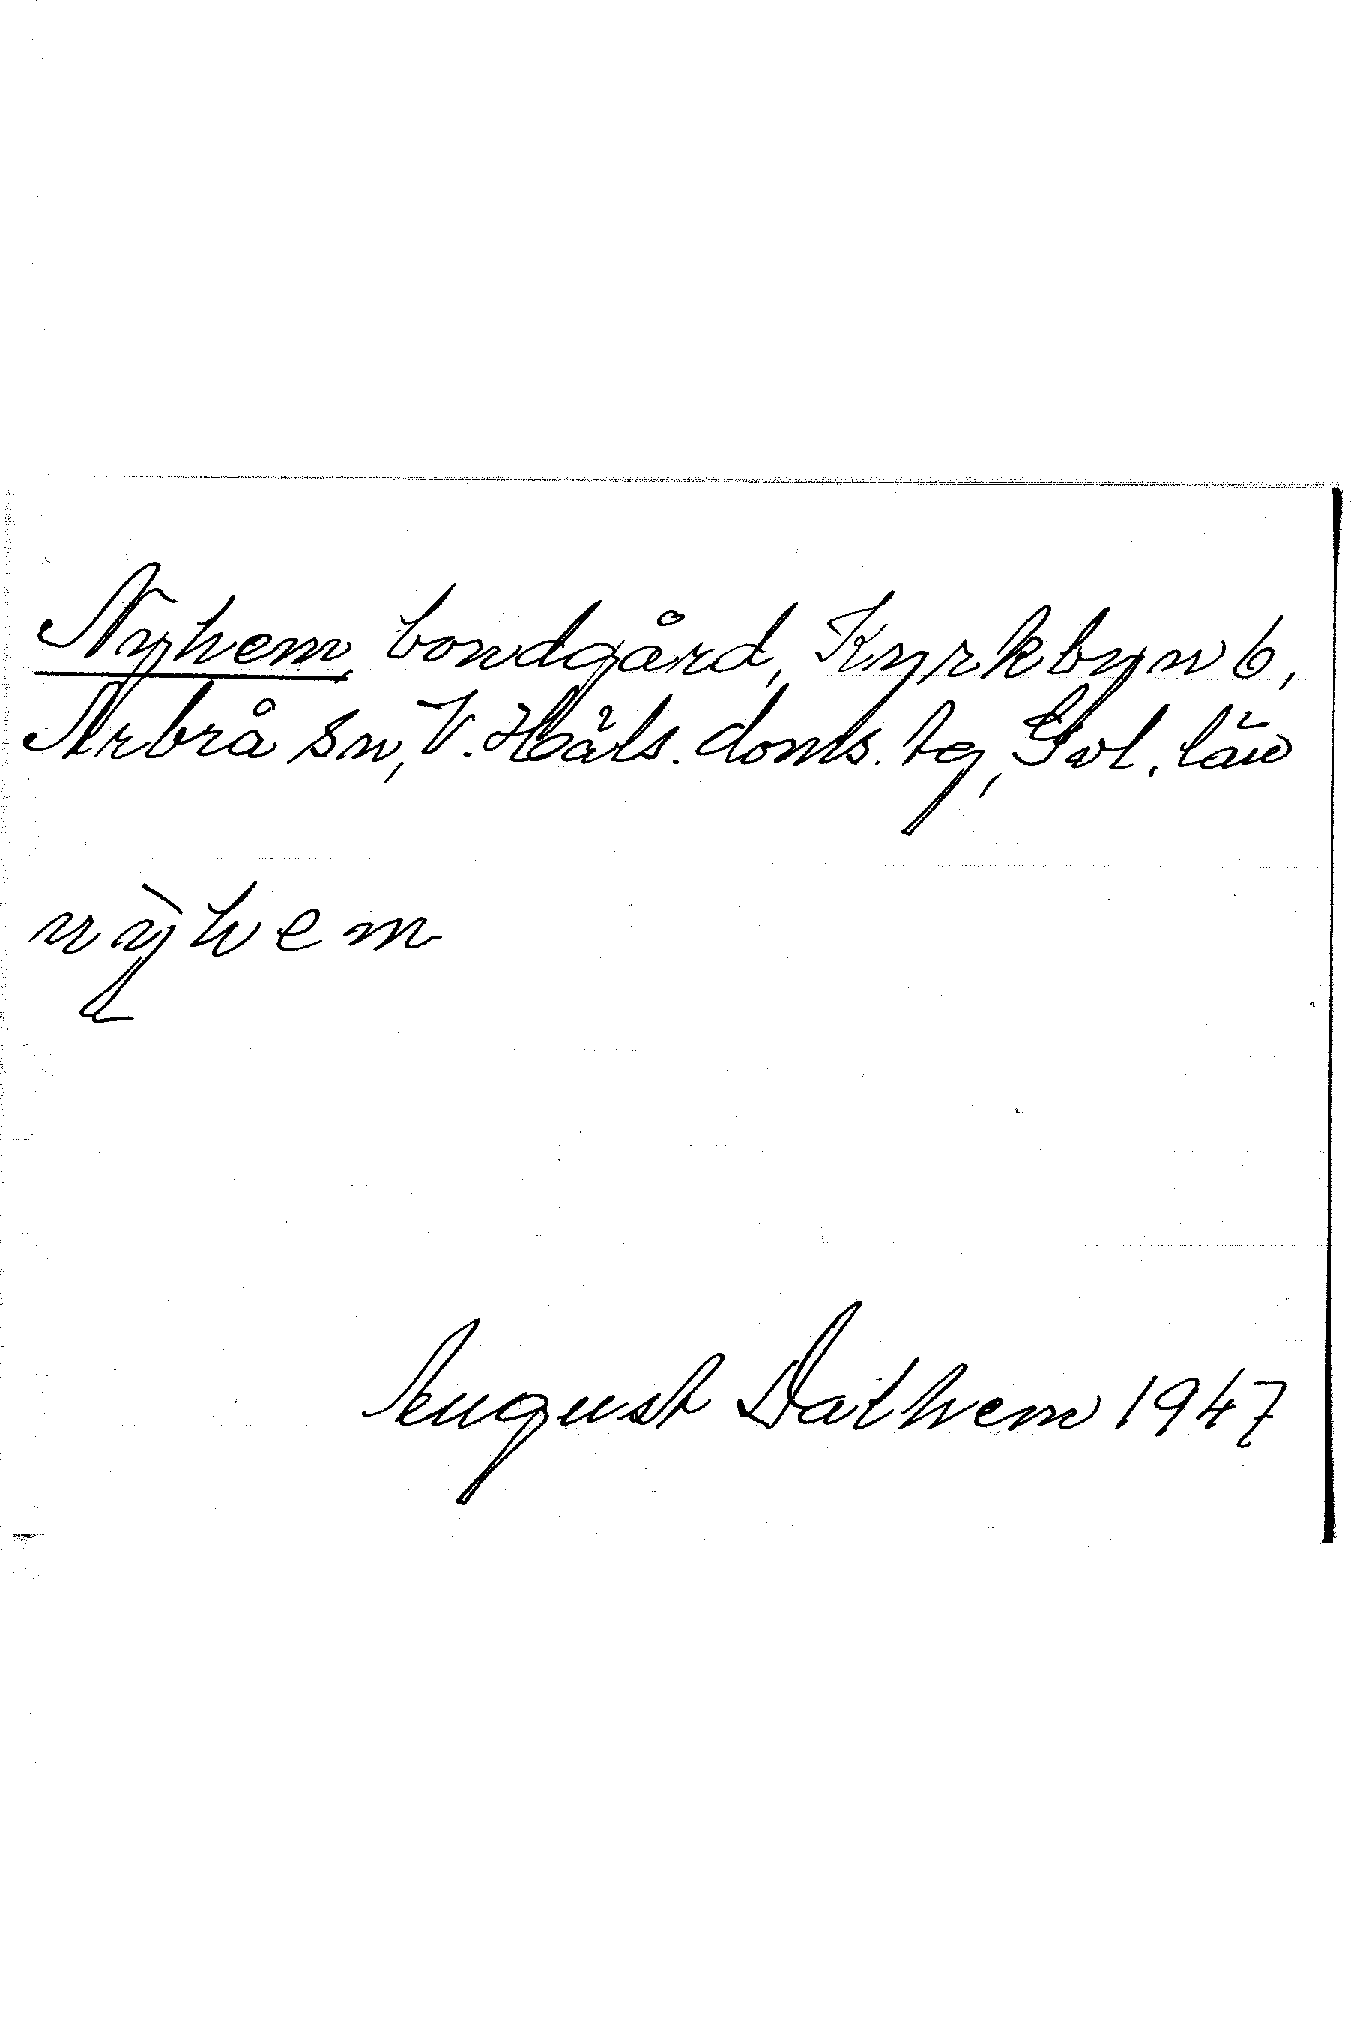 Nyhem, bondgård, Kyrkbyn 6,
Arbrå sn, V. Häls. doms. tg, Gvl. län
nỳhem
August Dathem 1947